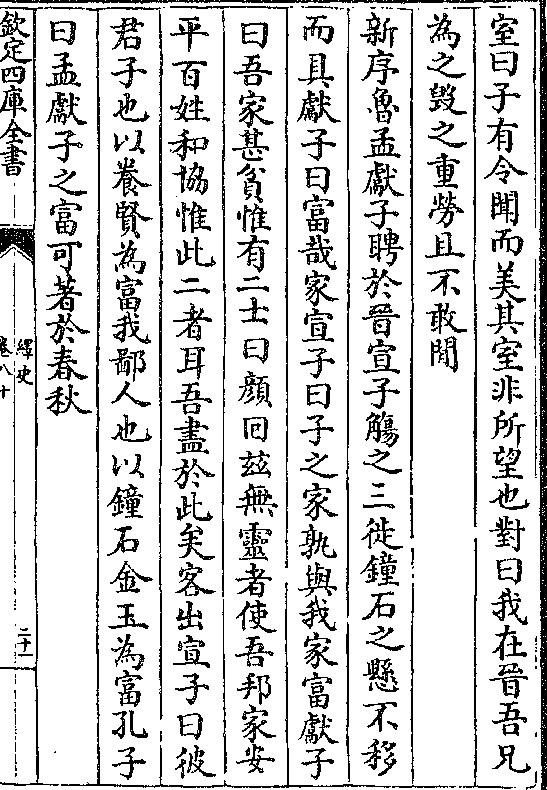 室曰子有令聞而美其室非所望也對曰我在晉吾兄
為之毀之重勞且不敢閒
新序魯孟獻子聘於晉宣子觴之三徙鐘石之懸不移
而具獻子曰富哉家宣子曰子之家孰與我家富獻子
曰吾家甚貧惟有二士曰顔回茲無靈者使吾邦家安
平百姓和協惟此二者耳吾盡於此矣客出宣子曰彼
君子也以養賢為富我鄙人也以鐘石金玉為富孔子
曰孟獻子之富可著於春秋
欽定四庫全書
繹史
卷八十
二十一